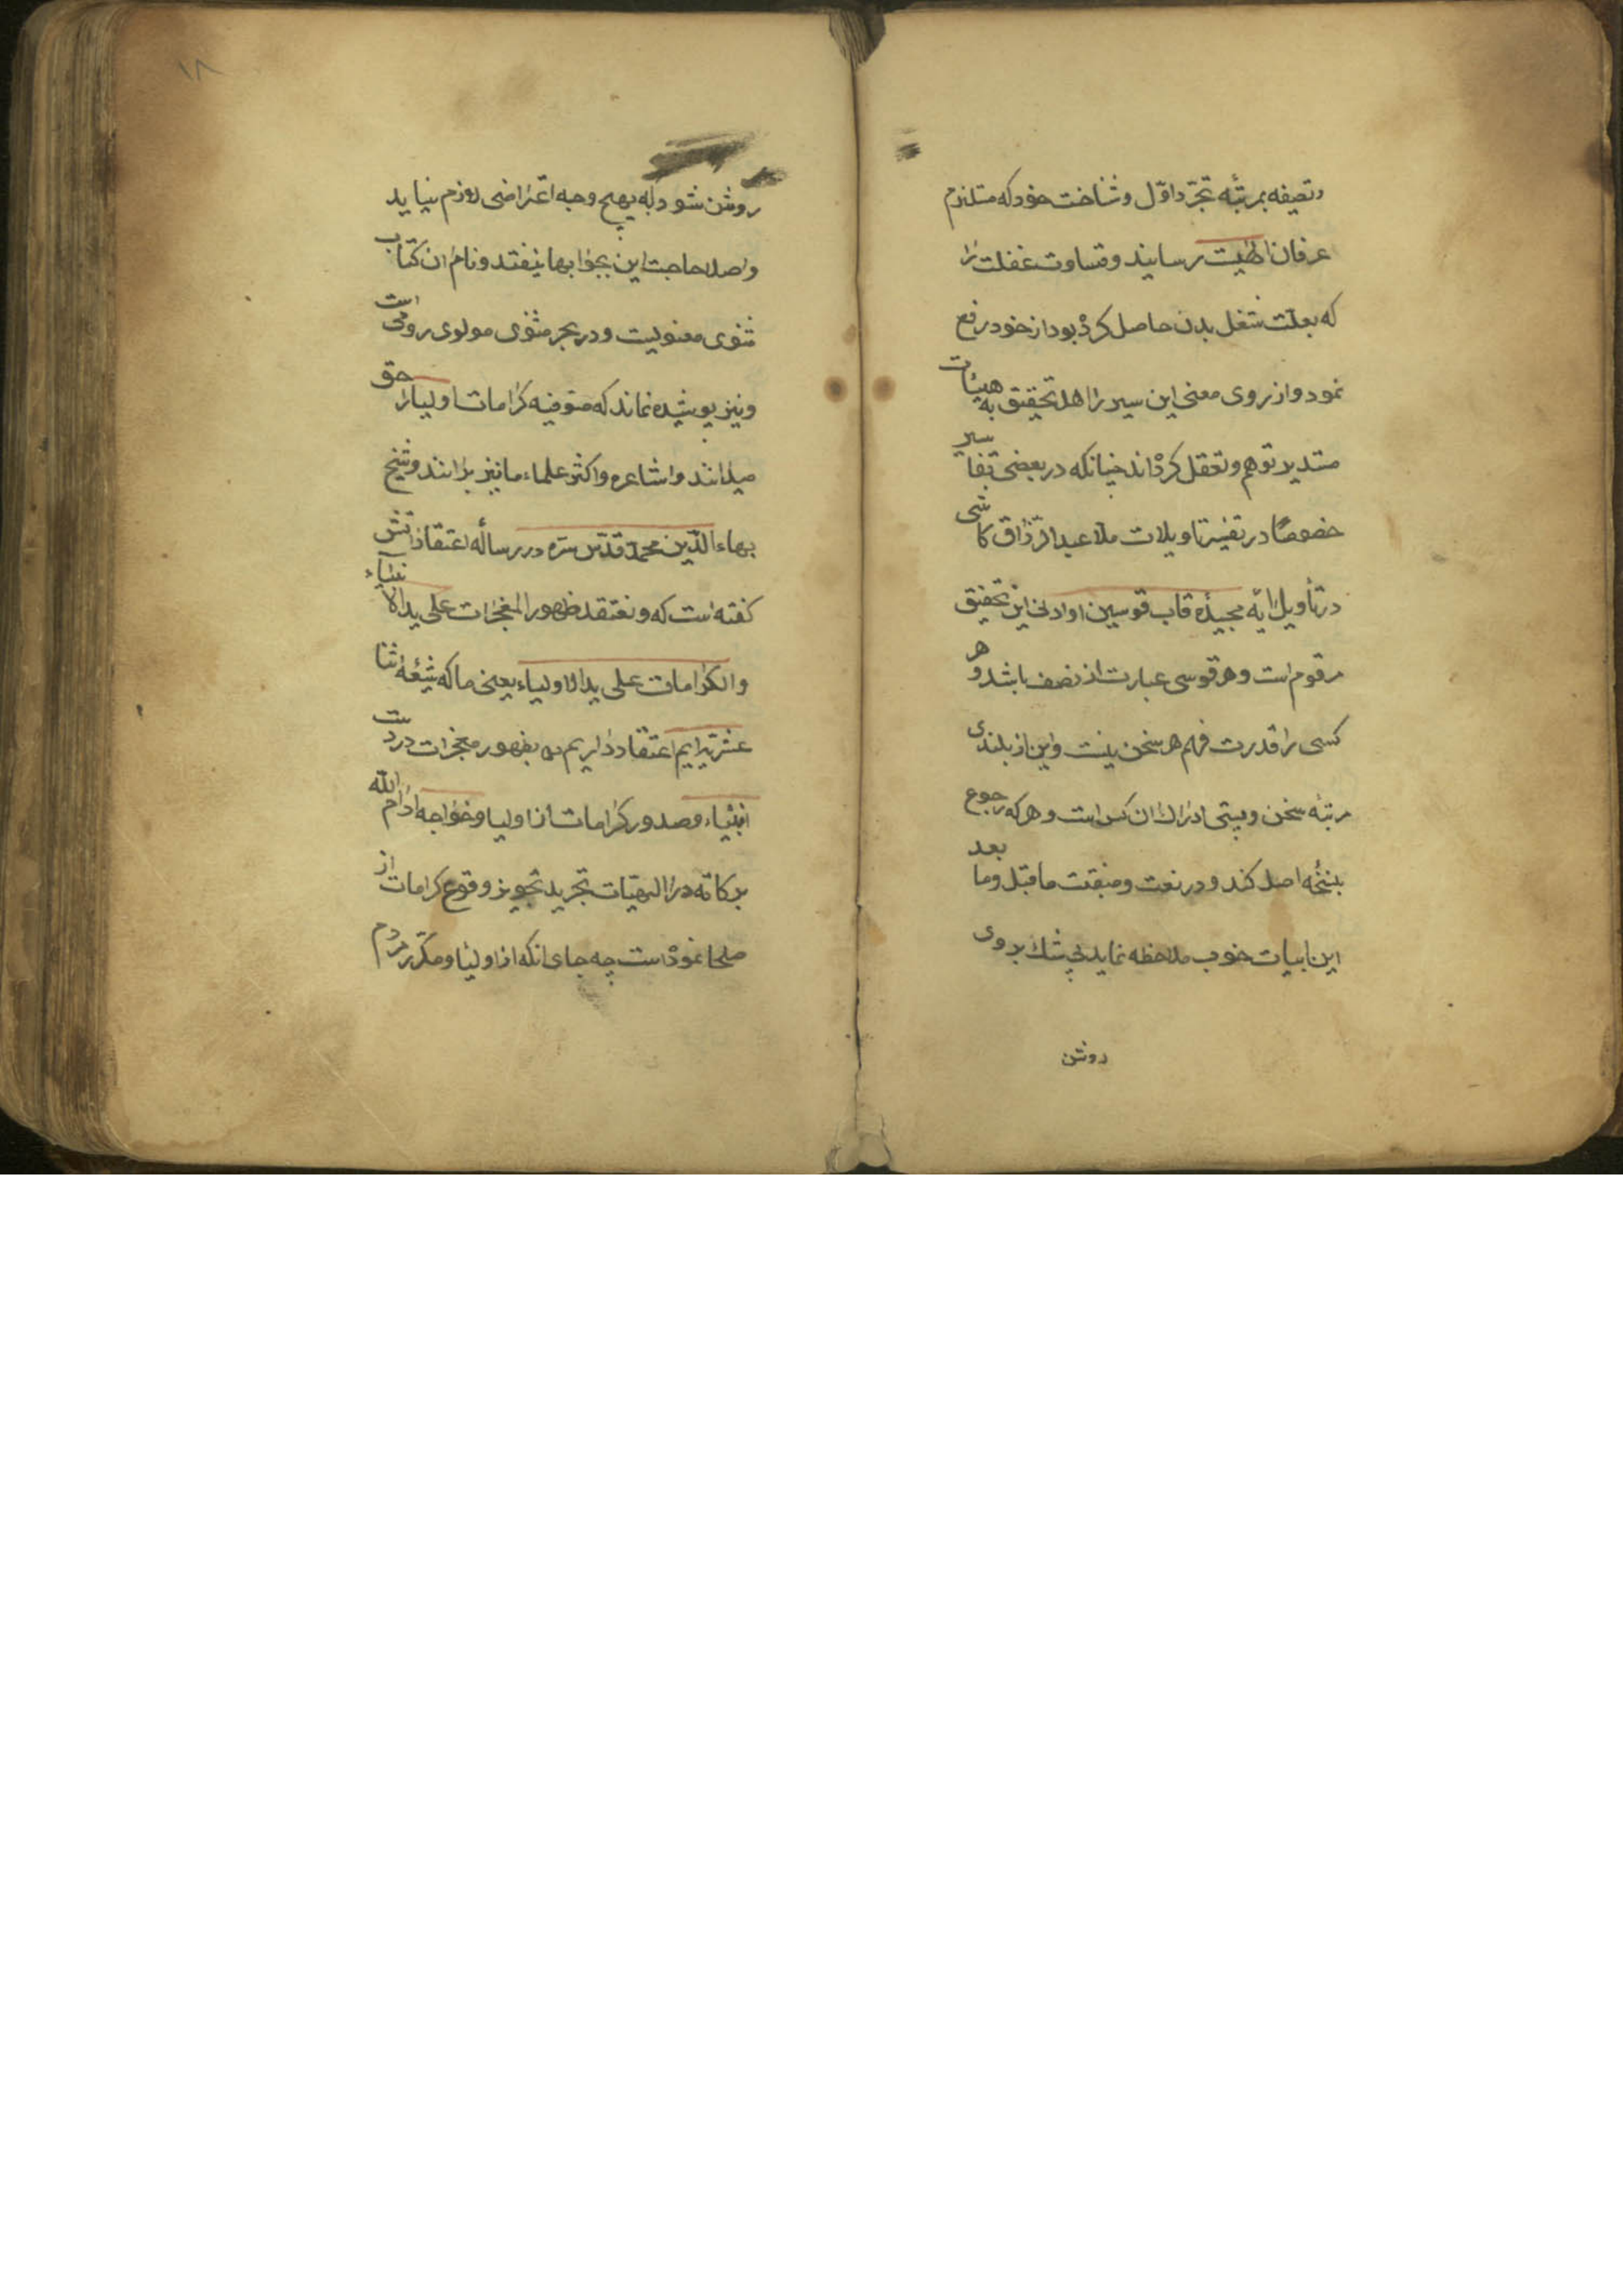 وتصفیه بمرتبهٔ تجرّد اوّل و شناخت خود که مستلزم
عرفان الهیست رسانید و قساوت غفلت را
که بعلت شغل بدن حاصل کردٔ بود از خود رفع
نمود و از روی معنی این سیر را اهل تحقیق به هیئات
مستدیر توهم و تعقل کردٔ اند چنانکه در بعضی تفاسیر
خصوصًا در تفسیر تاویلات ملا عبد الرزاق کاشی
در تأویل ایه مجیدٔه قاب قوسین او ادنی این تحقیق
مرقوم است و هر قوسی عبارت از نصف باشد و هر
کسی را قدرت فهم هر سخن نیست و این از بلندی
مرتبه سخن و پستی ادراك ان کس است و هر که رجوع
بنسخهٔ اصل کند و در نعت و منقبت ما قبل و ما بعد
این ابیات خوب ملاحظه نماید بی شك بر وی
روشن
۱۸
روشن شود که بهیچ وجه اعتراضی لازم نیاید
و اصلا حاجت این بجوابها نیفتد و نام ان کتاب
مثنوی معنویست و در بحر مثنوی مولوی رومی است
و نیز پوشیده نماند که صوفیه کرامات اولیا را حق
میدانند و اشاعره و اکثر علماء ما نیز برانند و شیخ
بهاء الدّین محمد قدّس سرّه در رسالٔه اعتقاداتش
کفته است که و نعتقد ظهور المعجزات علی ید الانبیاء
والکرامات علی ید الاولیاء یعنی ما که شیعٔه اثنا
عشریّه ایم اعتقاد داریم بظهور معجزات در دست
انبیاء و صدور کرامات از اولیا و خواجه ادام الله
برکاته در الهیّات تجرید تجویز وقوع کرامات از
صلحا نمودٔ است چه جای انکه از اولیا و مکرّر مردم